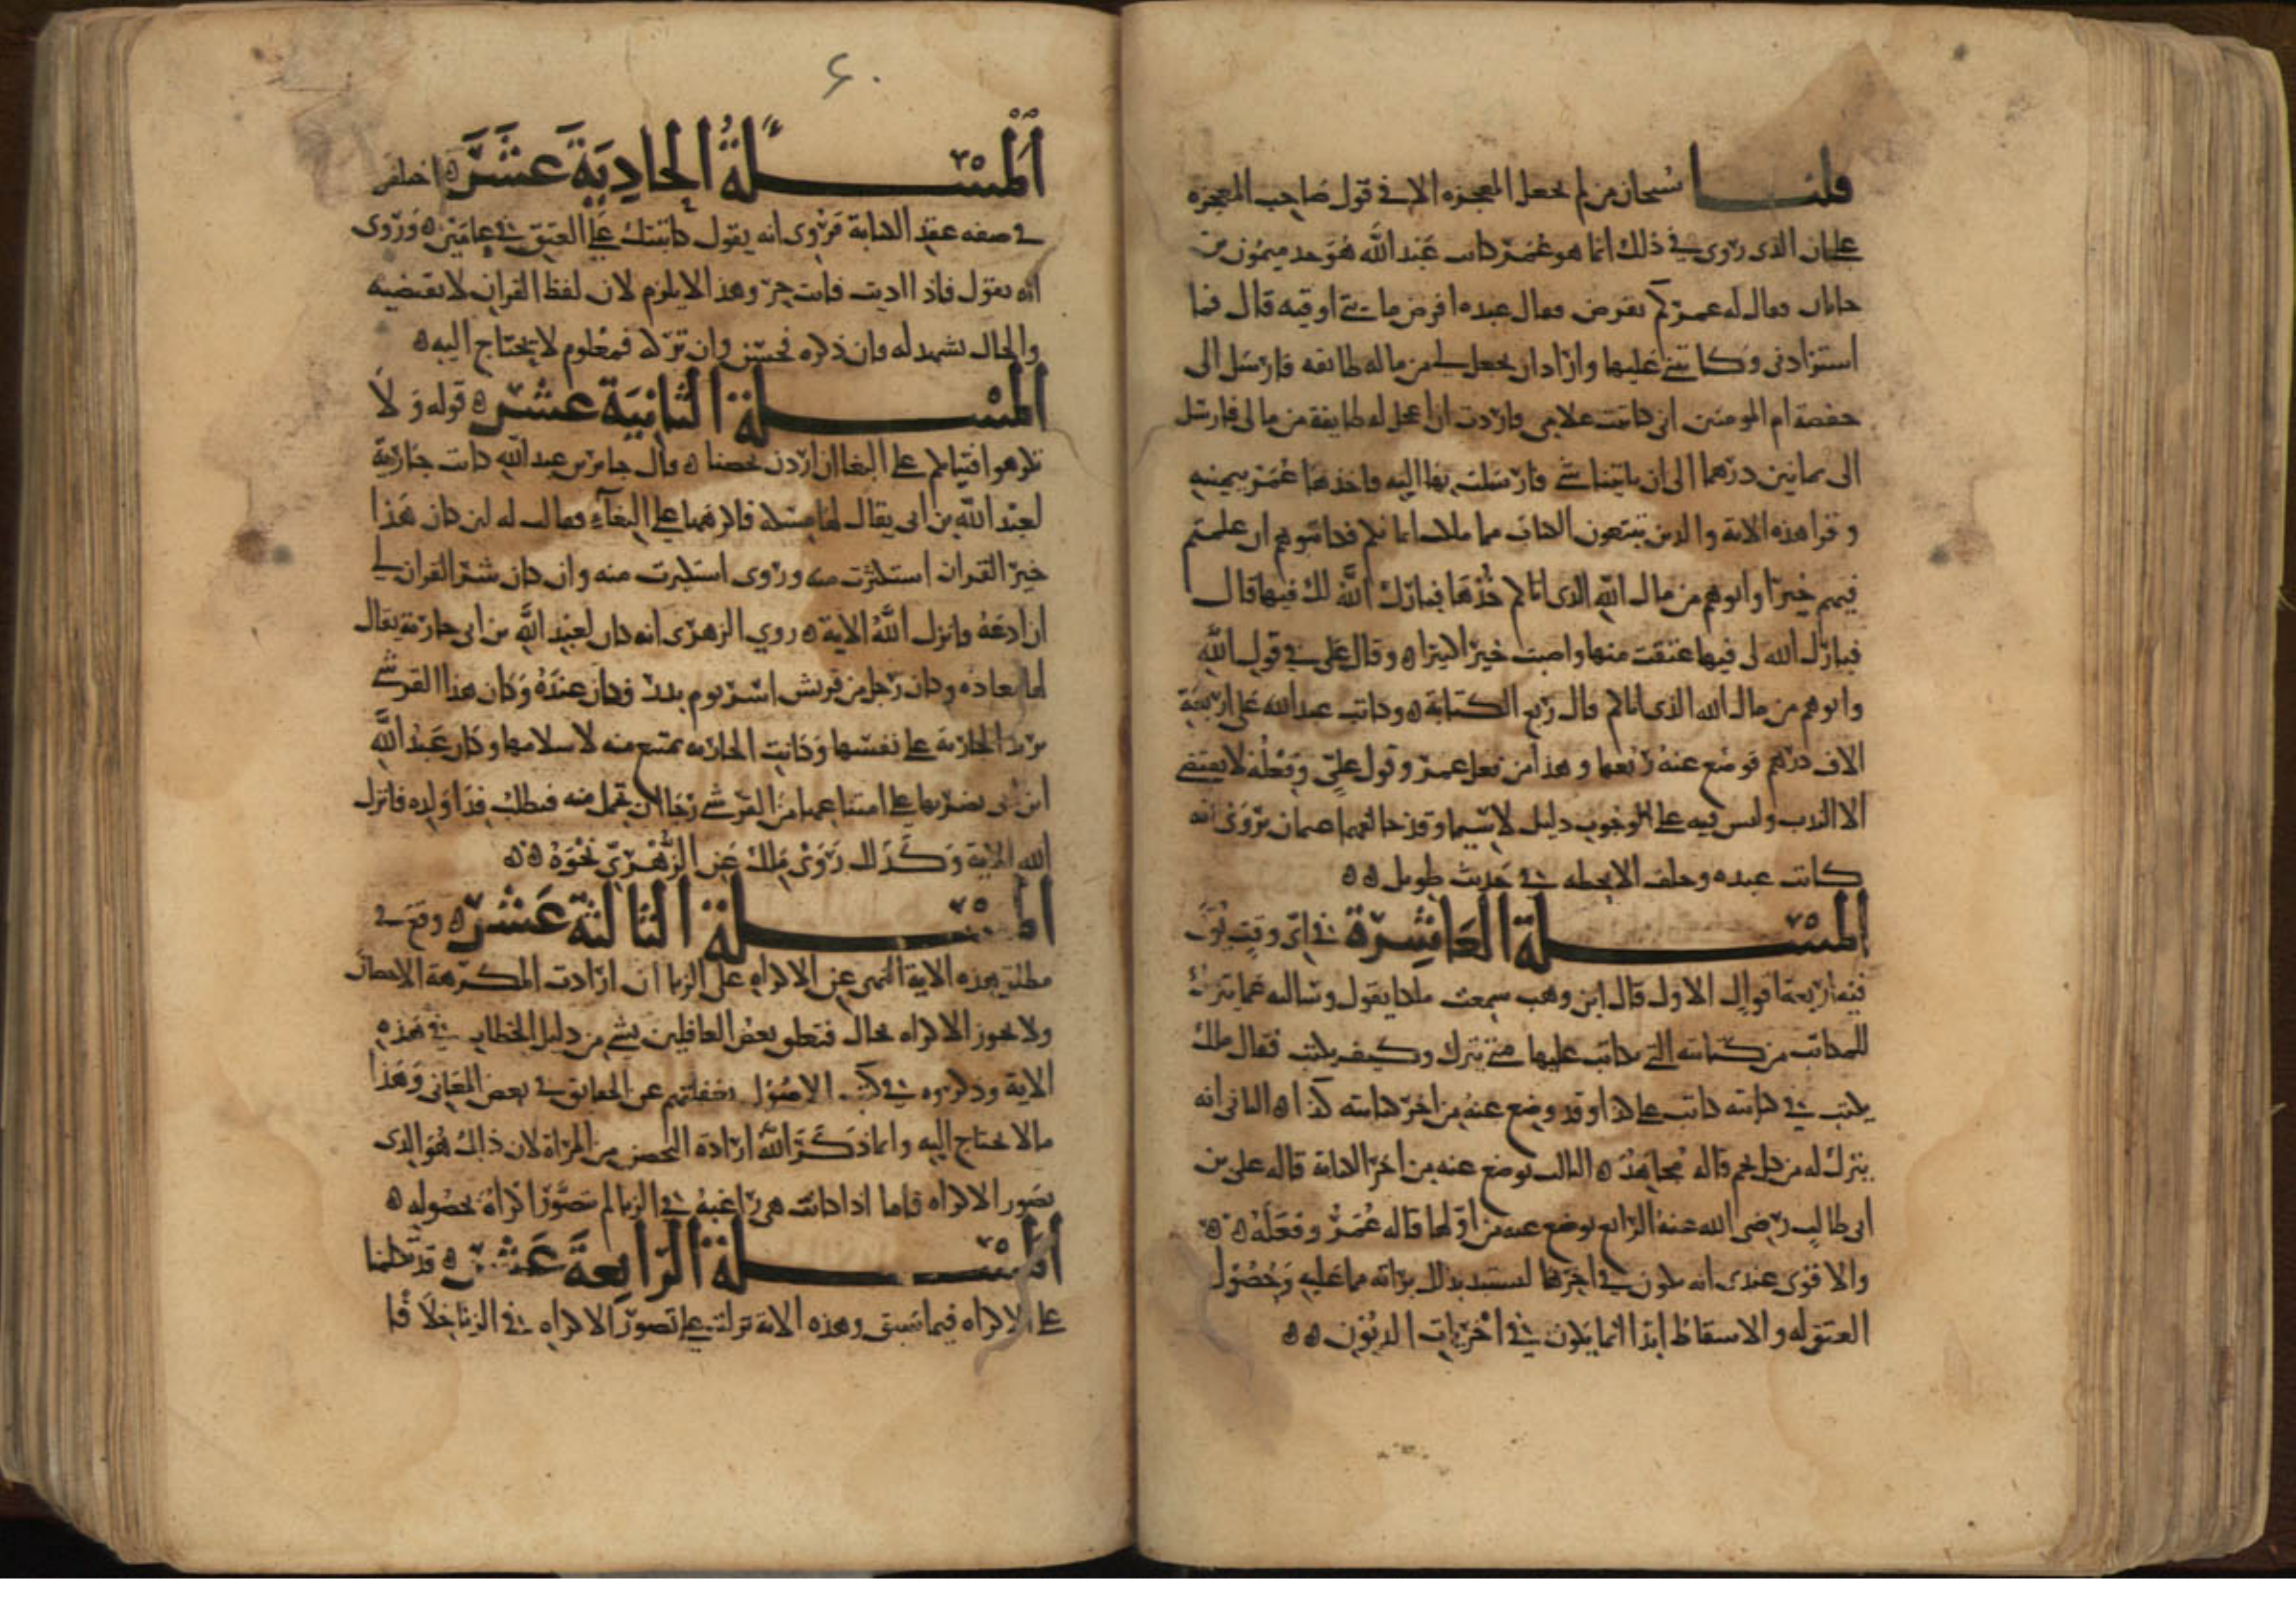 قلنا سبحان من لم يجعل المعجزة الا في قول صاحب المعجزة
على ان الذي روى في ذلك انما هو عمر كاتب عبد الله هو جد ميمون بن
جابان فقال له عمر كم تعرض فقال عبده اعرض مايتي اوقيه قال فما
استزادني وكاتبني عليها واراد ان يجعل لي من ماله طايفه فارسل الى
حفصة ام المومنين اني كاتبت غلامي فاردت ان اعجل له طايفة من مالي فارسل
الى بمايتين درهما الى ان ياتينا شي فارسلت بها اليه فاخذها عمر بيمينه
وقرا هذه الاية والذين يبتغون الكتاب مما ملكت ايمانكم فكاتبوهم ان علمتم
فيهم خيرا واتوهم من مال الله الذي اتاكم خذها فبارك الله لك فيها قال
فبارك الله لي فيها عتقت منها واصبت خيرا كثيرا ه وقال علي في قول الله
واتوهم من مال الله الذي اتاكم قال ربع الكتابة ه وكاتب عبد الله على اربعة
الاف درهم فوضع عنه ربعها وهذا من فعل عمر وقول علي وفعله لا يقتضي
الا الندب وليس فيه على الوجوب دليل لا سيما وقد خالفهما عثمان يروى انه
كاتب عبده وحلف الا يحطه في حديث طويل ه ه
المسلة العاشرة في اي وقت يوتى
فيه اربعة اقوال الاول قال ابن وهب سمعت ملكا يقول وسالته عما يترك
للمكاتب من كتابته التي يكاتب عليها متى يترك وكيف يكتب فقال ملك
يكتب في كتابته كاتب على كذا وقد وضع عنه من اخر كتابته كذا ه الثاني انه
يترك له من كل نجم قاله مجاهد ه الثالث يوضع عنه من اخر الكتابة قاله علي بن
ابي طالب رضي الله عنه الرابع يوضع عنه من اولها قاله عمر وفعله ه ه
والاقوى عندي انه يكون في اخرها ليستبد بذلك براته مما عليه وحصول
العتق له والاسقاط ابدا انما يكون في اخريات الديون ه ه
٤٠
المسلة الحادية عشر ه اختلف
في صفه عقد الكتابة فروى انه يقول كاتبتك على العتق في عامين ه وروى
انه يقول فاذا اديت فانت حر وهذا لا يلزم لان لفظ القران لا يقتضيه
والحال يشهد له فان ذكره فحسن وان تركه فمعلوم لا يحتاج اليه ه
المسلة الثانية عشر ه قوله ولا
تكرهوا فتياتكم على البغا ان اردن تحصنا ه قال جابر بن عبد الله كانت جارية
لعبد الله بن ابي يقال لها مسيكة فاكرهها على البغاء فقالت له لين كان هذا
خير القد ان استكثرت منه وروى استكبرت منه وان كان شر القد ان لي
ان ادعه وانزل الله الاية ه روى الزهري انه كان لعبد الله بن ابي جارية يقال
لها معاذه وكان رجل من قريش اسر يوم بدر فكان عنده وكان هذا القرشي
يريد الجارية على نفسها وكانت الجارية تمتنع منه لاسلامها وكان عبد الله
ابن ابي يضربها على امتناعها من القرشي رجا ان تحمل منه فيطلب فدا ولده فانزل
الله الاية وكذلك روى ملك عن الزهري نحوه ه ه
المسلة الثالثة عشر ه وقع في
مطلق هذه الاية النهى عن الاكراه على الزنا ان ارادت المكرهة الاحصان
ولا يجوز الاكراه بحال فتعلق بعض الغافلين بشي من دليل الخطاب في هذه
الاية وذكروه في كتب الاصول لغفلتهم عن الحقايق في بعض المعاني وهذا
مالا يحتاج اليه وانما ذكر الله ارادة التحصن من المراة لان ذلك هو الذي
يصور الاكراه فاما اذا كانت هي راغبة في الزنا لم يتصور اكراه بحصوله ه
المسلة الرابعة عشر ه قد تكلمنا
على الاكراه فيما سبق وهذه الاية تدلت على تصور الاكراه في الزنا خلافا